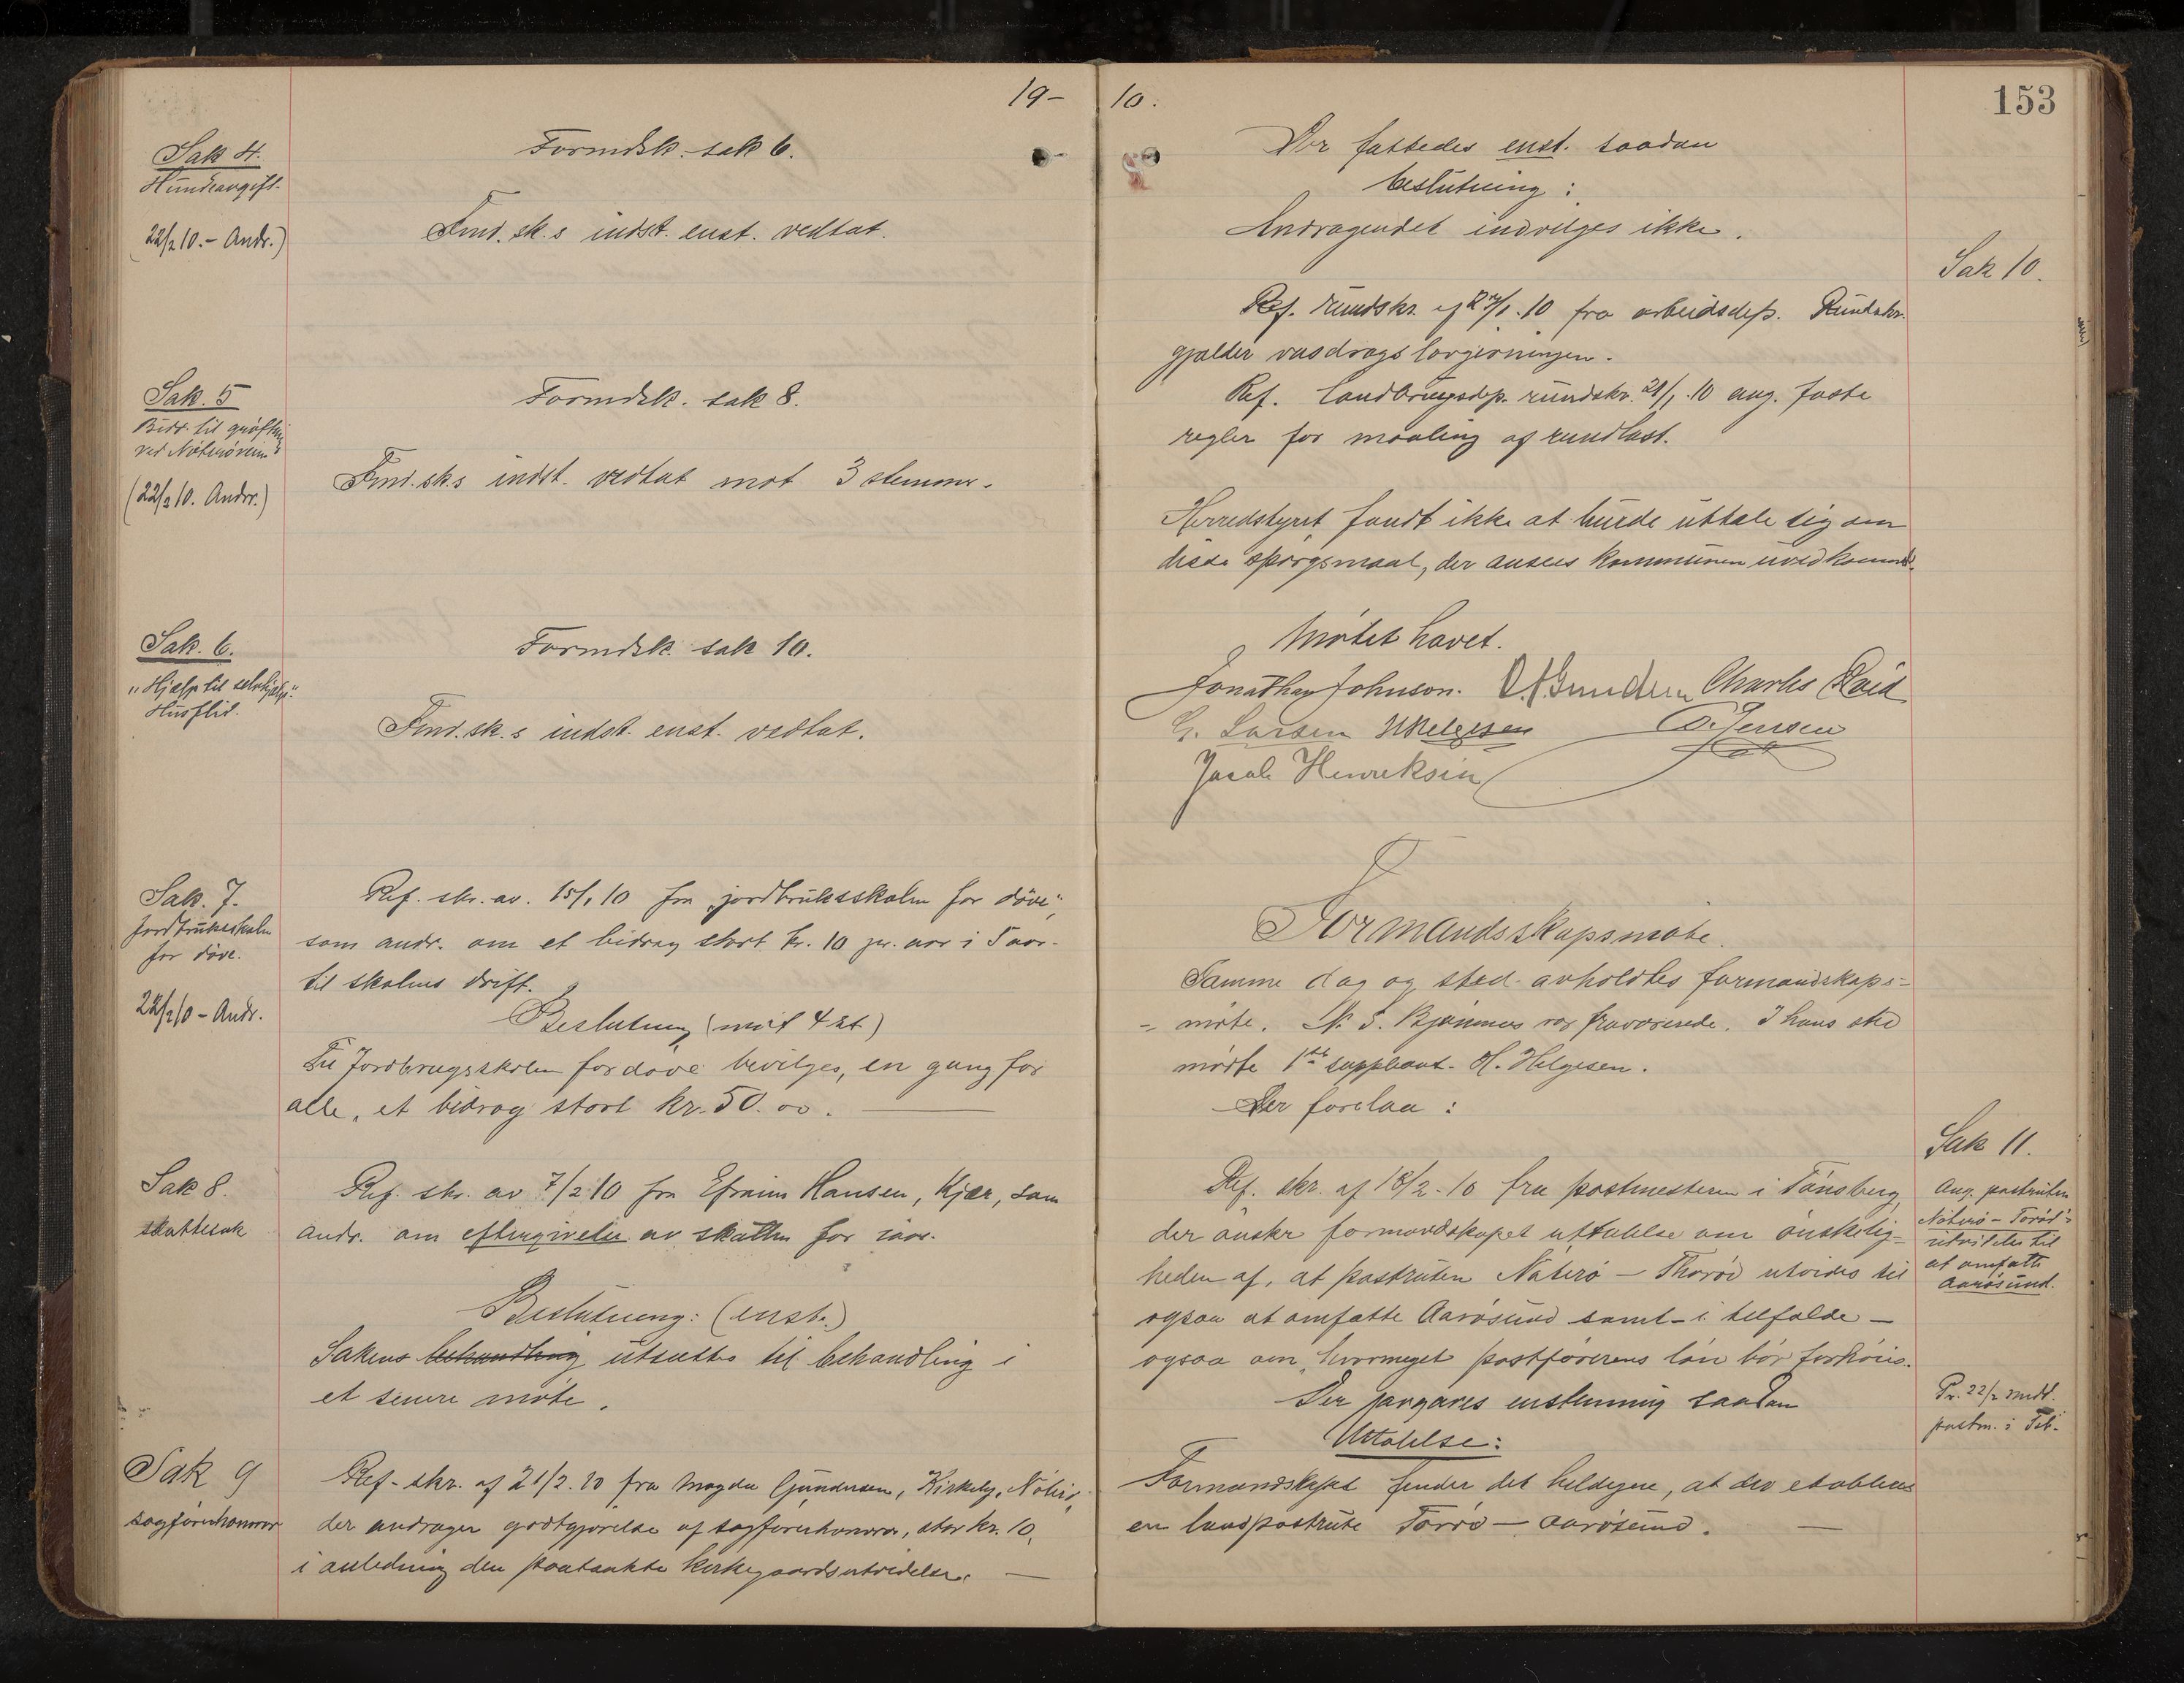 19-
Sak 4.
Hundeavgift.
(22/2 10.- Andr.)
Formdsk. sak 6.
Fmd. sk.s indst. enst. vedtat.
Sak. 5
Bidr. til grøftn.
ved Nøterøveien
(22/2 10. Andr.)
Formdsk. sak 8.
Fmd.sk.s indst. vedtat mot 3 stemmer.
Sak. 6.
"Hjælp til selvhjælp".
Husflid.
Formdsk. sak 10.
Fmd.sk.s indst. enst. vedtat.
Sak. 7.
Jordbruksskolen
for døve.
22/2 10 - Andr.
Ref. skr. av. 15/1 10 fra "jordbruksskolen for døve",
som andr. om et bidrag stort kr. 10 pr. aar i 5 aar.
til skolens drift.
Beslutning (mot 4 st.)
Til Jordbrugsskolen for døve bevilges, en gang for
alle, et bidrag stort kr. 50.00.
Sak 8.
skattesak
Ref. skr. av 7/2 10 fra Efraim Hansen, Kjær, som
andr. om eftergivelse av skatten for iaar.
Beslutning: (enst.)
Sakens behandling utsættes til behandling i
et senere møte.
Sak 9
sagførerhonorar
Ref. skr. af 21/2.10 fra Magda Gundersen, Kirkeby, Nøterø,
der andrager godtgjørelse af sagførerhonorar, stor kr. 10,
i anledning den paatænkte kirkegaardsutvidelse.
10.
153
Der fattedes enst. saadan
beslutning:
Andragendet indvilges ikke.
Sak 10.
Ref. rundskr. af 27/1.10 fra arbeidsdep. Rundskr.
gjælder vasdragslovgivningen.
Ref. Landbrugsdep. rundskr. 21/1.10 ang. faste
regler for maaling af rundlast.
Herredstyret fandt ikke at burde uttale sig om
disse spørgsmaal, der ansees kommunen uvedkommende.
Møtet hævet.
Jonathan Johnson. O. Gundersen Charles Røed
G. Larsen H Helgesen O. Jensen
Jacob Henriksen
Formandsskapsmøte.
Samme dag og sted avholdtes formandskaps-
- møte. N. S. Bjønnes var fraværende. I hans sted
mødte 1ste suppleant. H. Helgesen.
Der forelaa:
Sak 11.
Ang. postruten
Nøterø - Torød's
utvidelse til
at omfatte
Aarøsund.
Ref. skr. af 18/2-10 fra postmesteren i Tønsberg,
der ønsker formandskapet uttalelse om ønskelig-
heden af, at postruten Nøterø - Thorød utvides til
ogsaa at omfatte Aarøsund samt - i tilfælde -
ogsaa om, hvormeget postførerens løn bør forhøies.
Pr. 22/2 medt.
postm. i Tb.
Der avgaves enstemmig saadan
Uttalelse:
Formandskapet finder det heldigere, at der etableres
en landpostrute Torød - Aarøsund.